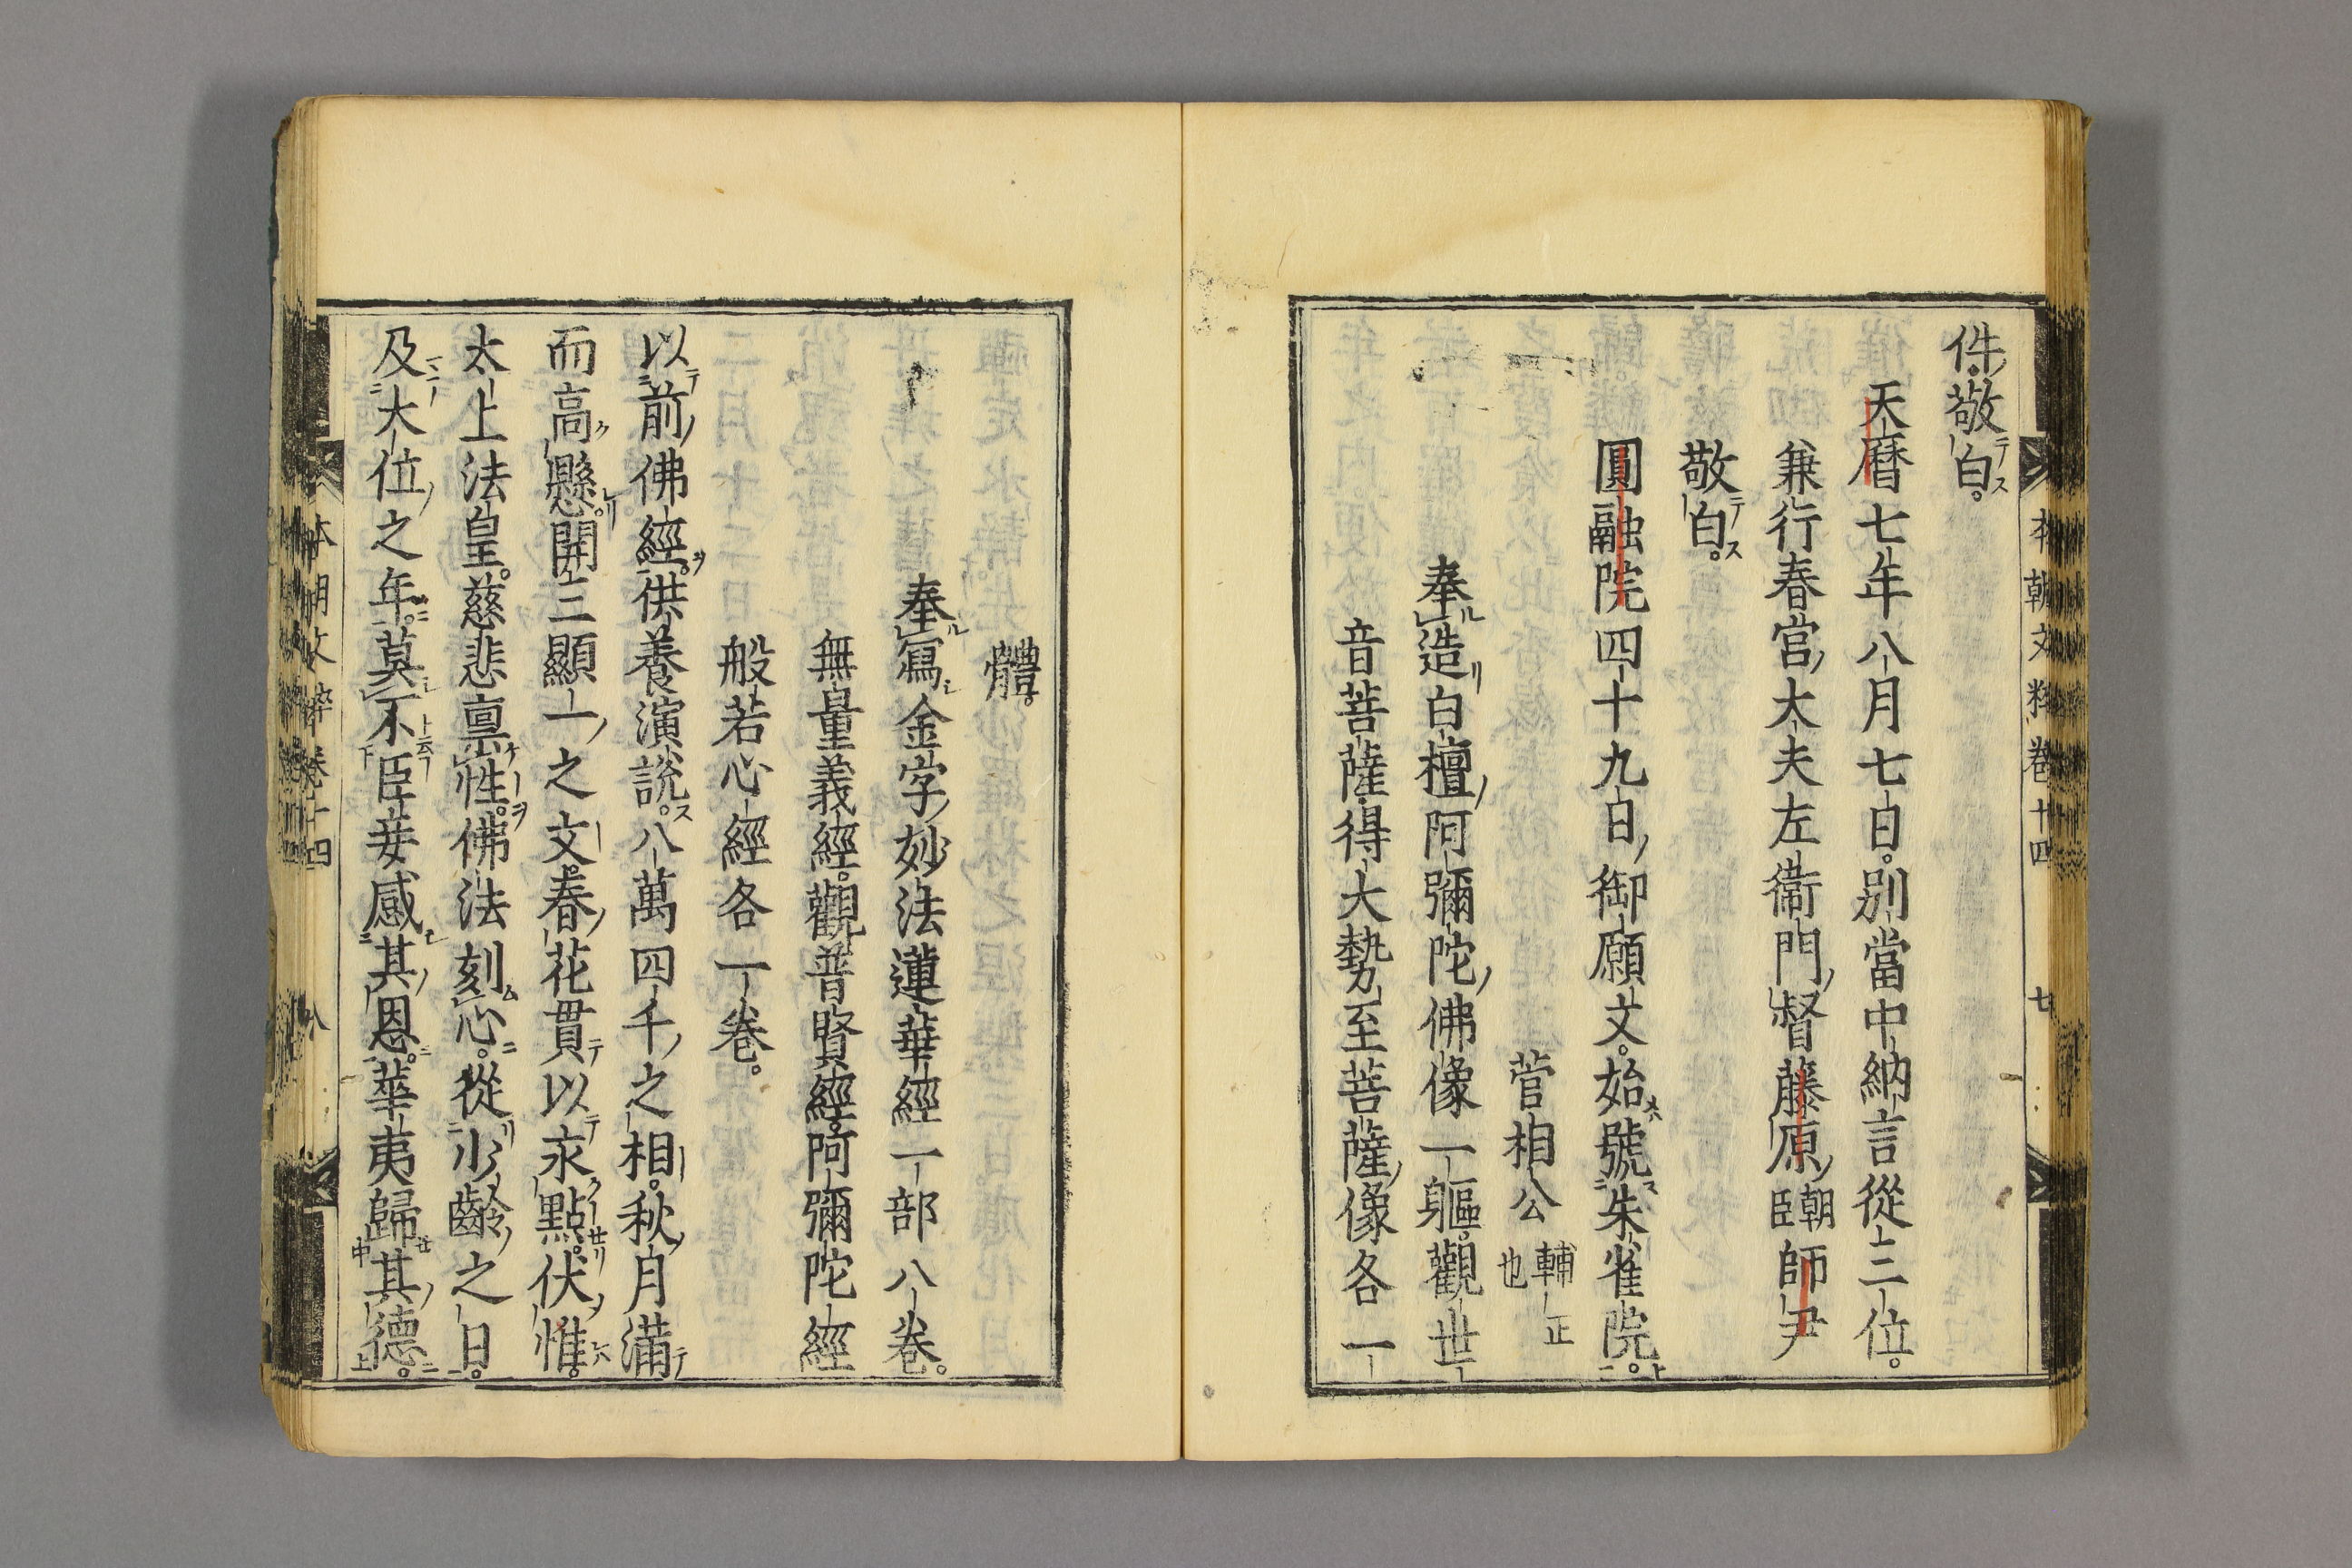 件敬白。
天曆七年八月七日。別當中納言從三位。
兼行春宮大夫左衞門督藤原朝臣師尹
敬白。
圓融院四十九日御願文。始號朱雀院。
菅相公輔正也
奉造白檀阿彌陀佛像一軀。觀世
音菩薩得大勢至菩薩像各一
本朝文粹卷十四 七
體。
奉寫金字妙法蓮華經一部八卷。
無量義經。觀普賢經。阿彌陀經
般若心經各一卷。
以前佛經。供養演說。八萬四千之相。秋月滿
而高懸。開三顯一之文。春花貫以永點。伏惟。
太上法皇。慈悲禀性。佛法刻心。從少齡之日。
及大位之年。莫不臣妾感其恩。華夷歸其德。
本朝文粹卷十四 八